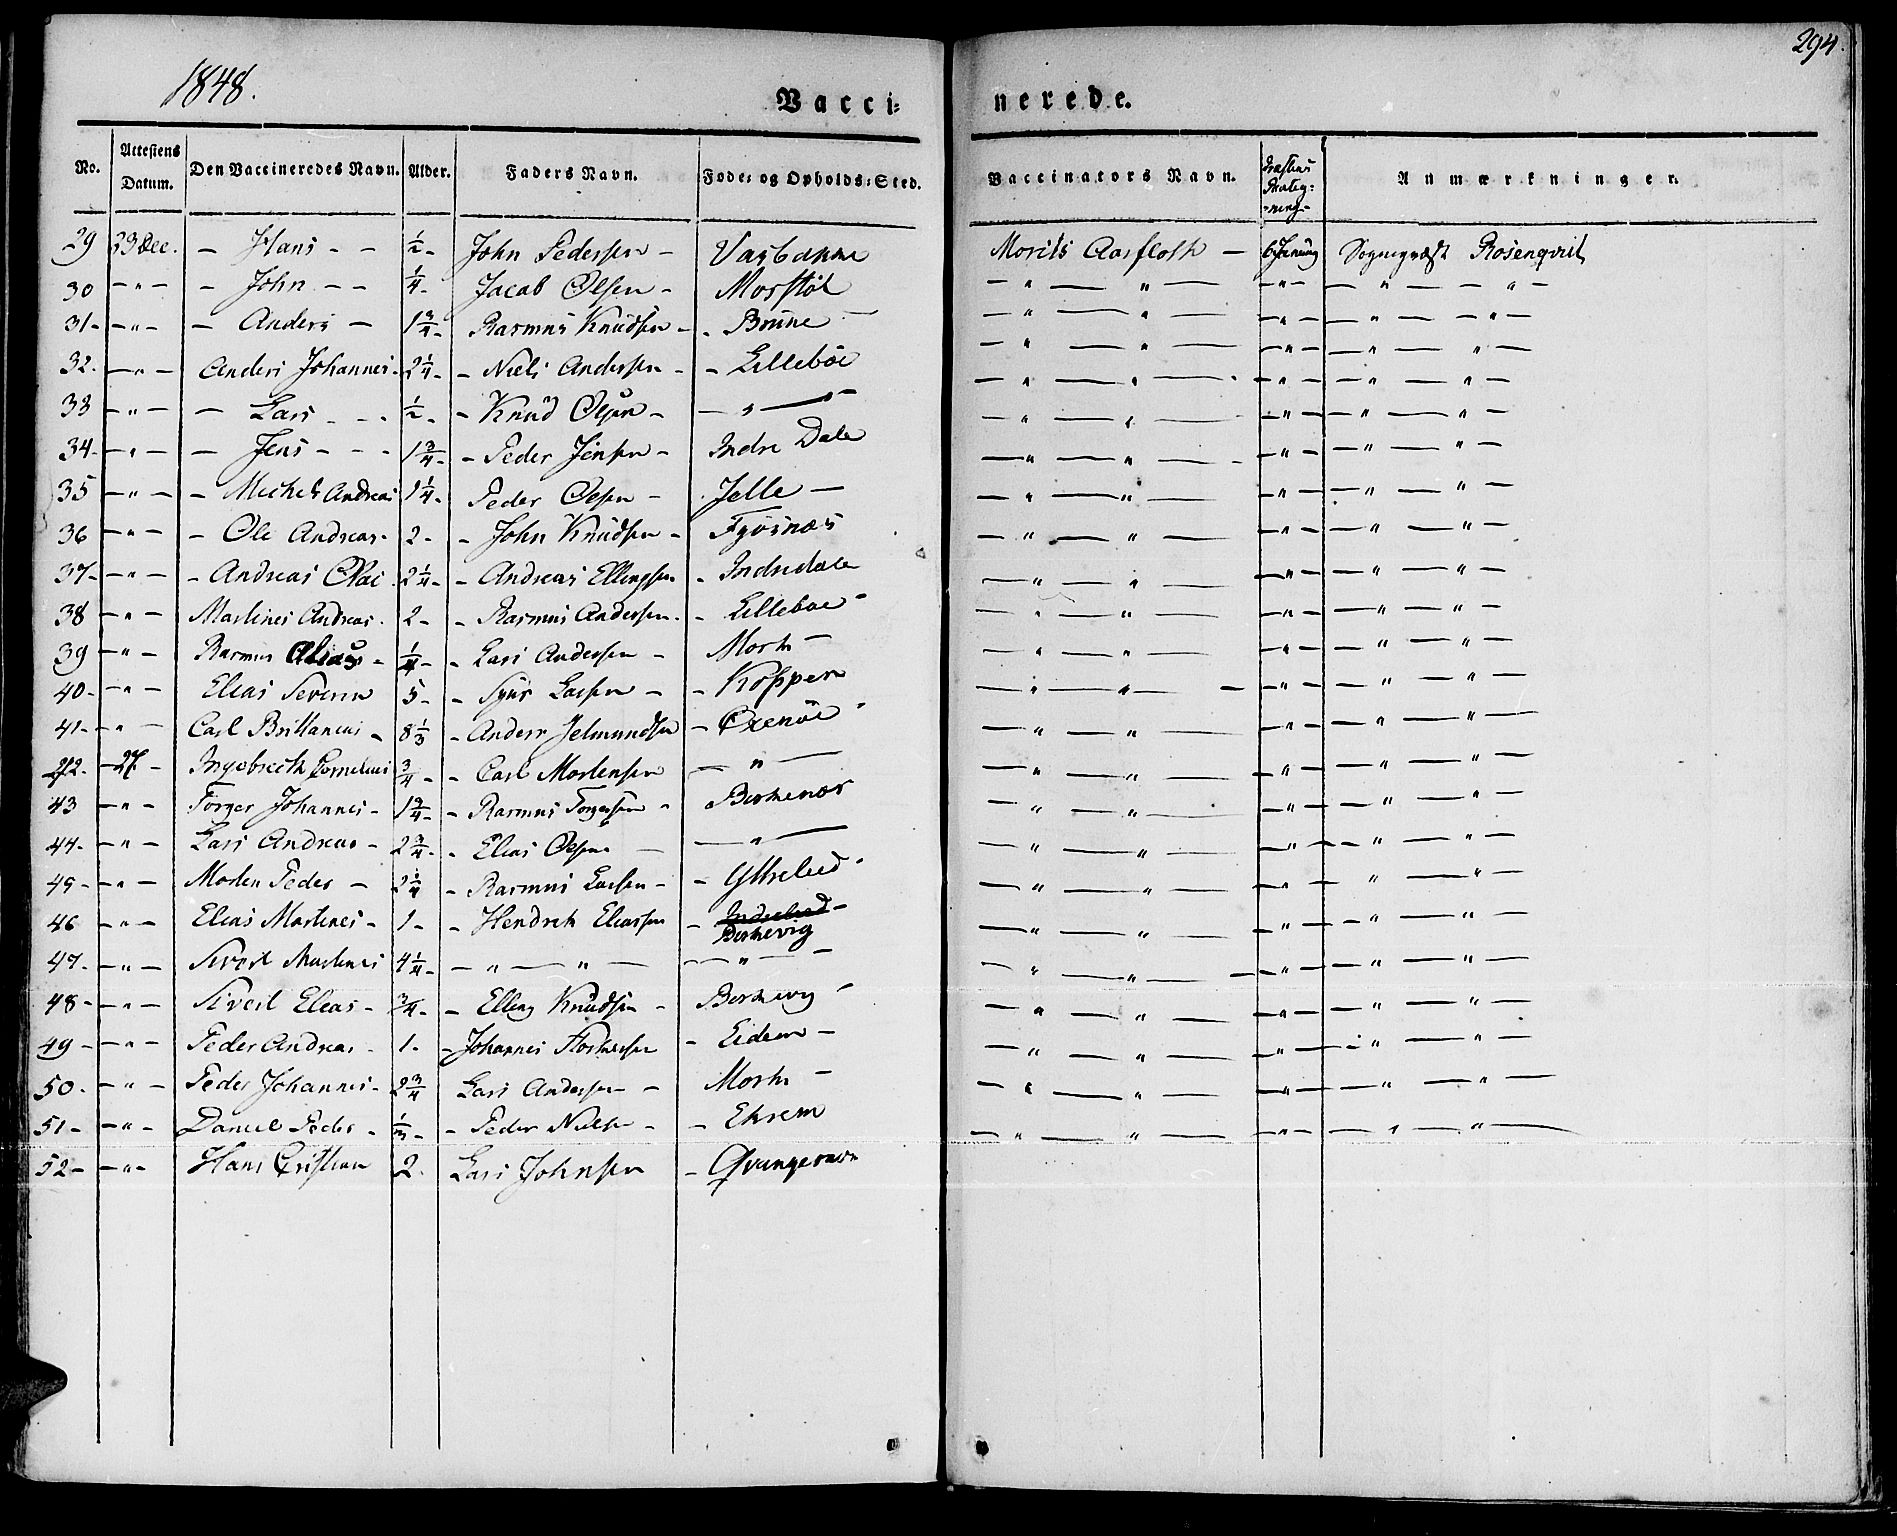 1848.
294.
Vacci=
nerede.
No. Attestens Datum. Den Vaccineredes Navn. Alder. Faders Navn. Føde= og Opholds=Sted. Vaccinators Navn. Anmærkninger.
29 23 Dec. - Hans - - ½ - John Pedersen - Moritz Aarfloth - Sognepræst Rosenqvist
30 - " - - John - - ¼ - Jacob Olsen - Morstøl - " - " - - " - - " - " -
31 - " - - Anders - 1¾ - Rasmus Knudsen - - " - " - - " - - " - " -
32. - " - Anders Johannes - 2¼ - Niels Andersen - - Lillebøe - " - " - - " - - " - " -
33 - " - - Lars - - ½ - - Knud Olsen - - " - - " - " - - " - - " - " -
34 - " - - Jens - - - 1¾ - - Peder Jensen - Indre Dale - " - " - - " - - " - " -
35 - " - - Michel Andreas 1¼ - Peder Olsen - Jelle - - " - " - - " - - " - " -
36 - " - - Ole Andreas - 2 - - John Knudsen - - " - " - - " - - " - " -
37 - " - - Andreas Olai 2¼ - - Andreas Ellingsen - Indredale - " - " - - " - - " - " -
38 - " - Martines Andreas - 2 - - Rasmus Andersen - - Lilleboe - " - " - - " - - " - " -
39 - " - Rasmus - ¼ - - Lars Andersen - Mork - - " - " - - " - - " - " -
40 - " - Elias Severin 5 - - Lassen - - Koppen - " - " - - " - - " - " -
41 - " - Carl - 8⅓ - Anders Jetmundsen - Oxenöe - " - " - - " - - " - " -
42. - 27 - Ingebrecth Cornelius ¾ - - Carl Mortensen - " - - " - " - - " - - " - " -
43 - " - Torger Johannes - 1¾ - - Rasmus Torgersen - - " - " - - " - - " - " -
44 - " - Lars Andreas - 2¾ - - Elias Olsen - - " - - " - " - - " - - " - " -
45 - " - Morten Peder - - Rasmus Lassen - - " - " - - " - - " - " -
46 - " - Elias Martines - 1 - - Hendrik Eliassen - Birkevig - " - " - - " - - " - " -
47 - " - Sivert Martines 4¼ - - " - " - - " - - " - " - - " - - " - " -
48 - " - Sivert Elias - ¾ - - Elling Knudsen - Birkevig - " - " - - " - - " - " -
49 - " - Peder Andreas - 1 - - Johannes - Eidem - - " - " - - " - - " - " -
50 - " - Peder Johannes - 2¾ Lars Andersen - Mork - - " - " - - " - - " - " -
51 - " - Daniel Peder - ⅓ - - Peder Nielsen - - Ekrem - " - " - - " - - " - " -
52 - " - Hans Cristian 2. Lars Johnsen -